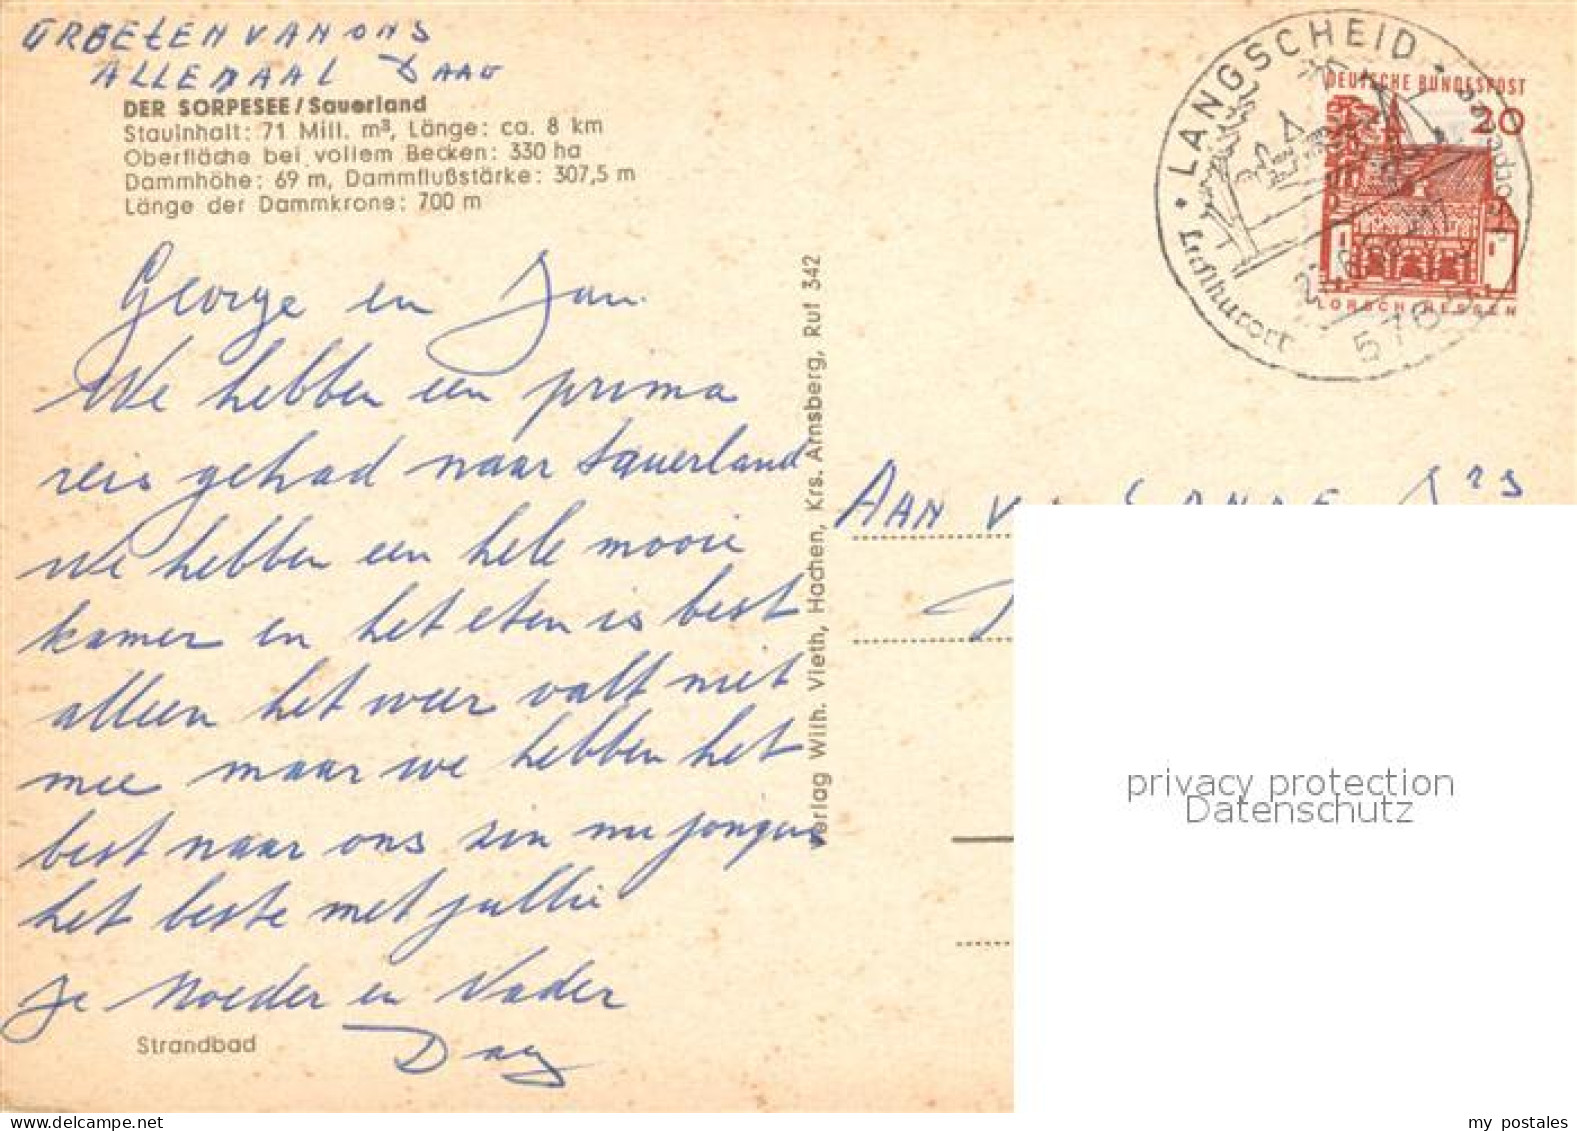 GROETEN VAN ONS
ALLEMAAL DAAG
DER SORPESEE/Sauerland
Stauinhalt: 71 Mill. m³, Länge: ca. 8 km
Oberfläche bei vollem Becken: 330 ha
Dammhöhe: 69 m, Dammflußstärke: 307,5 m
Länge der Dammkrone: 700 m
George en Jan
We hebben een prima
reis gehad naar Sauerland
We hebben een hele mooie
kamer en het eten is best
alleen het weer valt niet
mee maar we hebben het
best naar ons zin nu jongens
het beste met jullie
je Moeder en Vader
Dag
Strandbad
Verlag Wilh. Vieth, Hachen, Krs. Arnsberg, Ruf 342
LANGSCHEID
Luftkurort
DEUTSCHE BUNDESPOST
20
LORSCH/HESSEN
AAN
privacy protection
Datenschutz
my postales